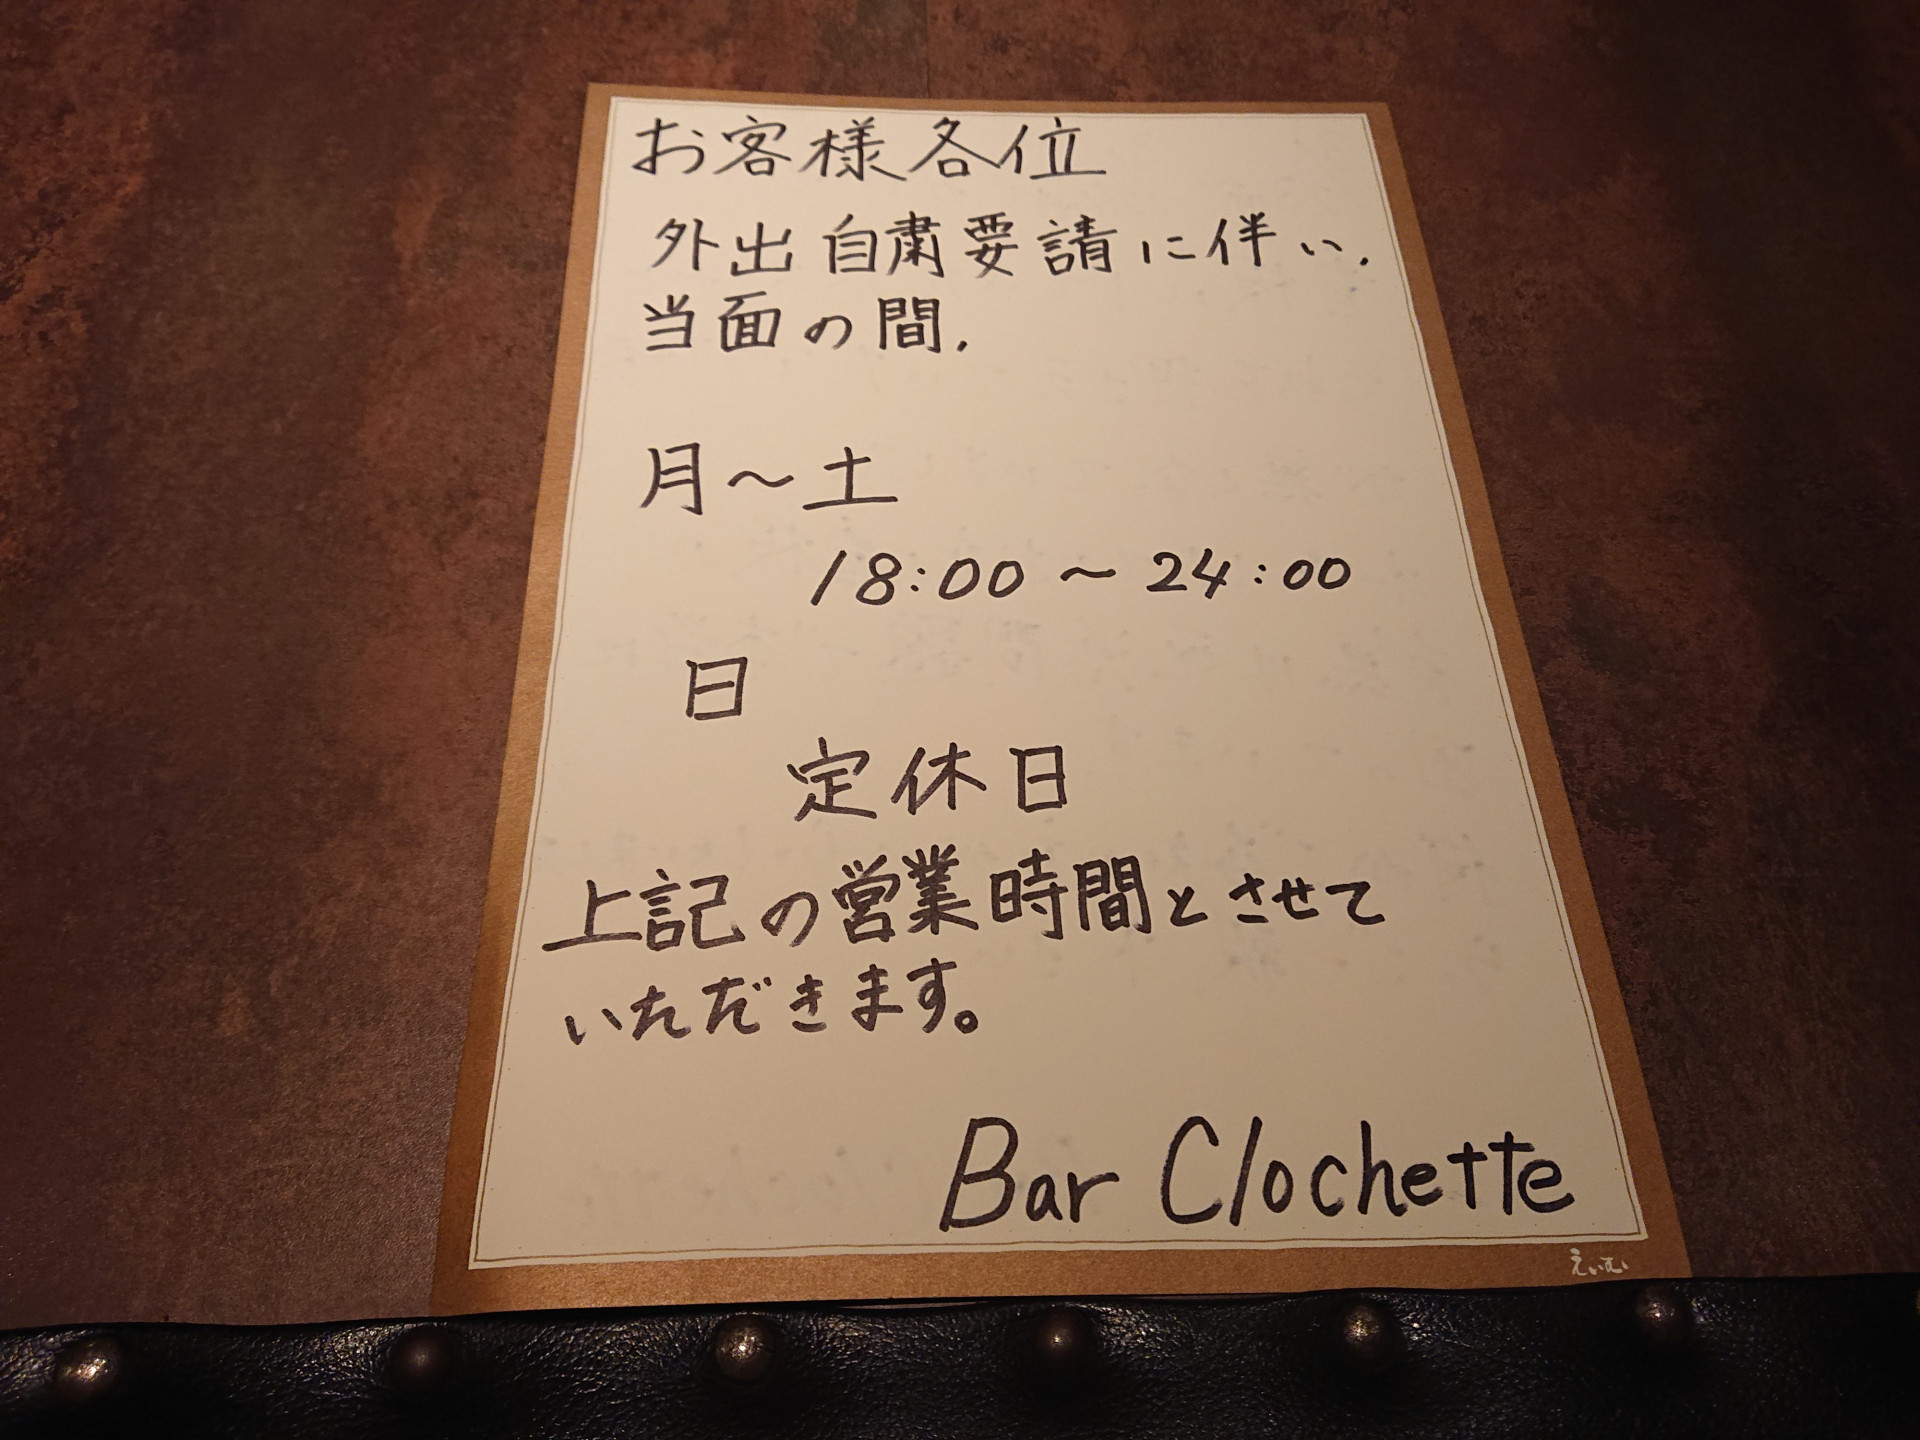 お客様各位
外出自粛要請に伴い,
当面の間,
月～土
18:00～24:00
日
定休日
上記の営業時間とさせて
いただきます。
Bar Clochette
えいむ